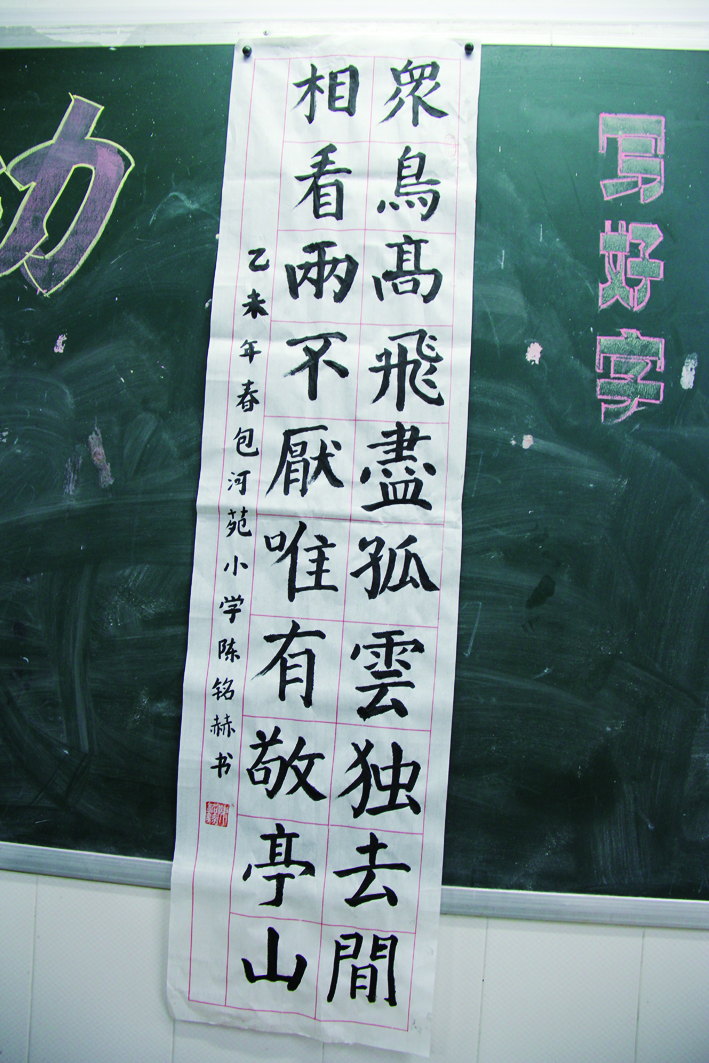 写好字
眾鳥髙飛盡孤雲独去間
相看兩不厭唯有敬亭山
乙未年春包河苑小学陈铭赫书